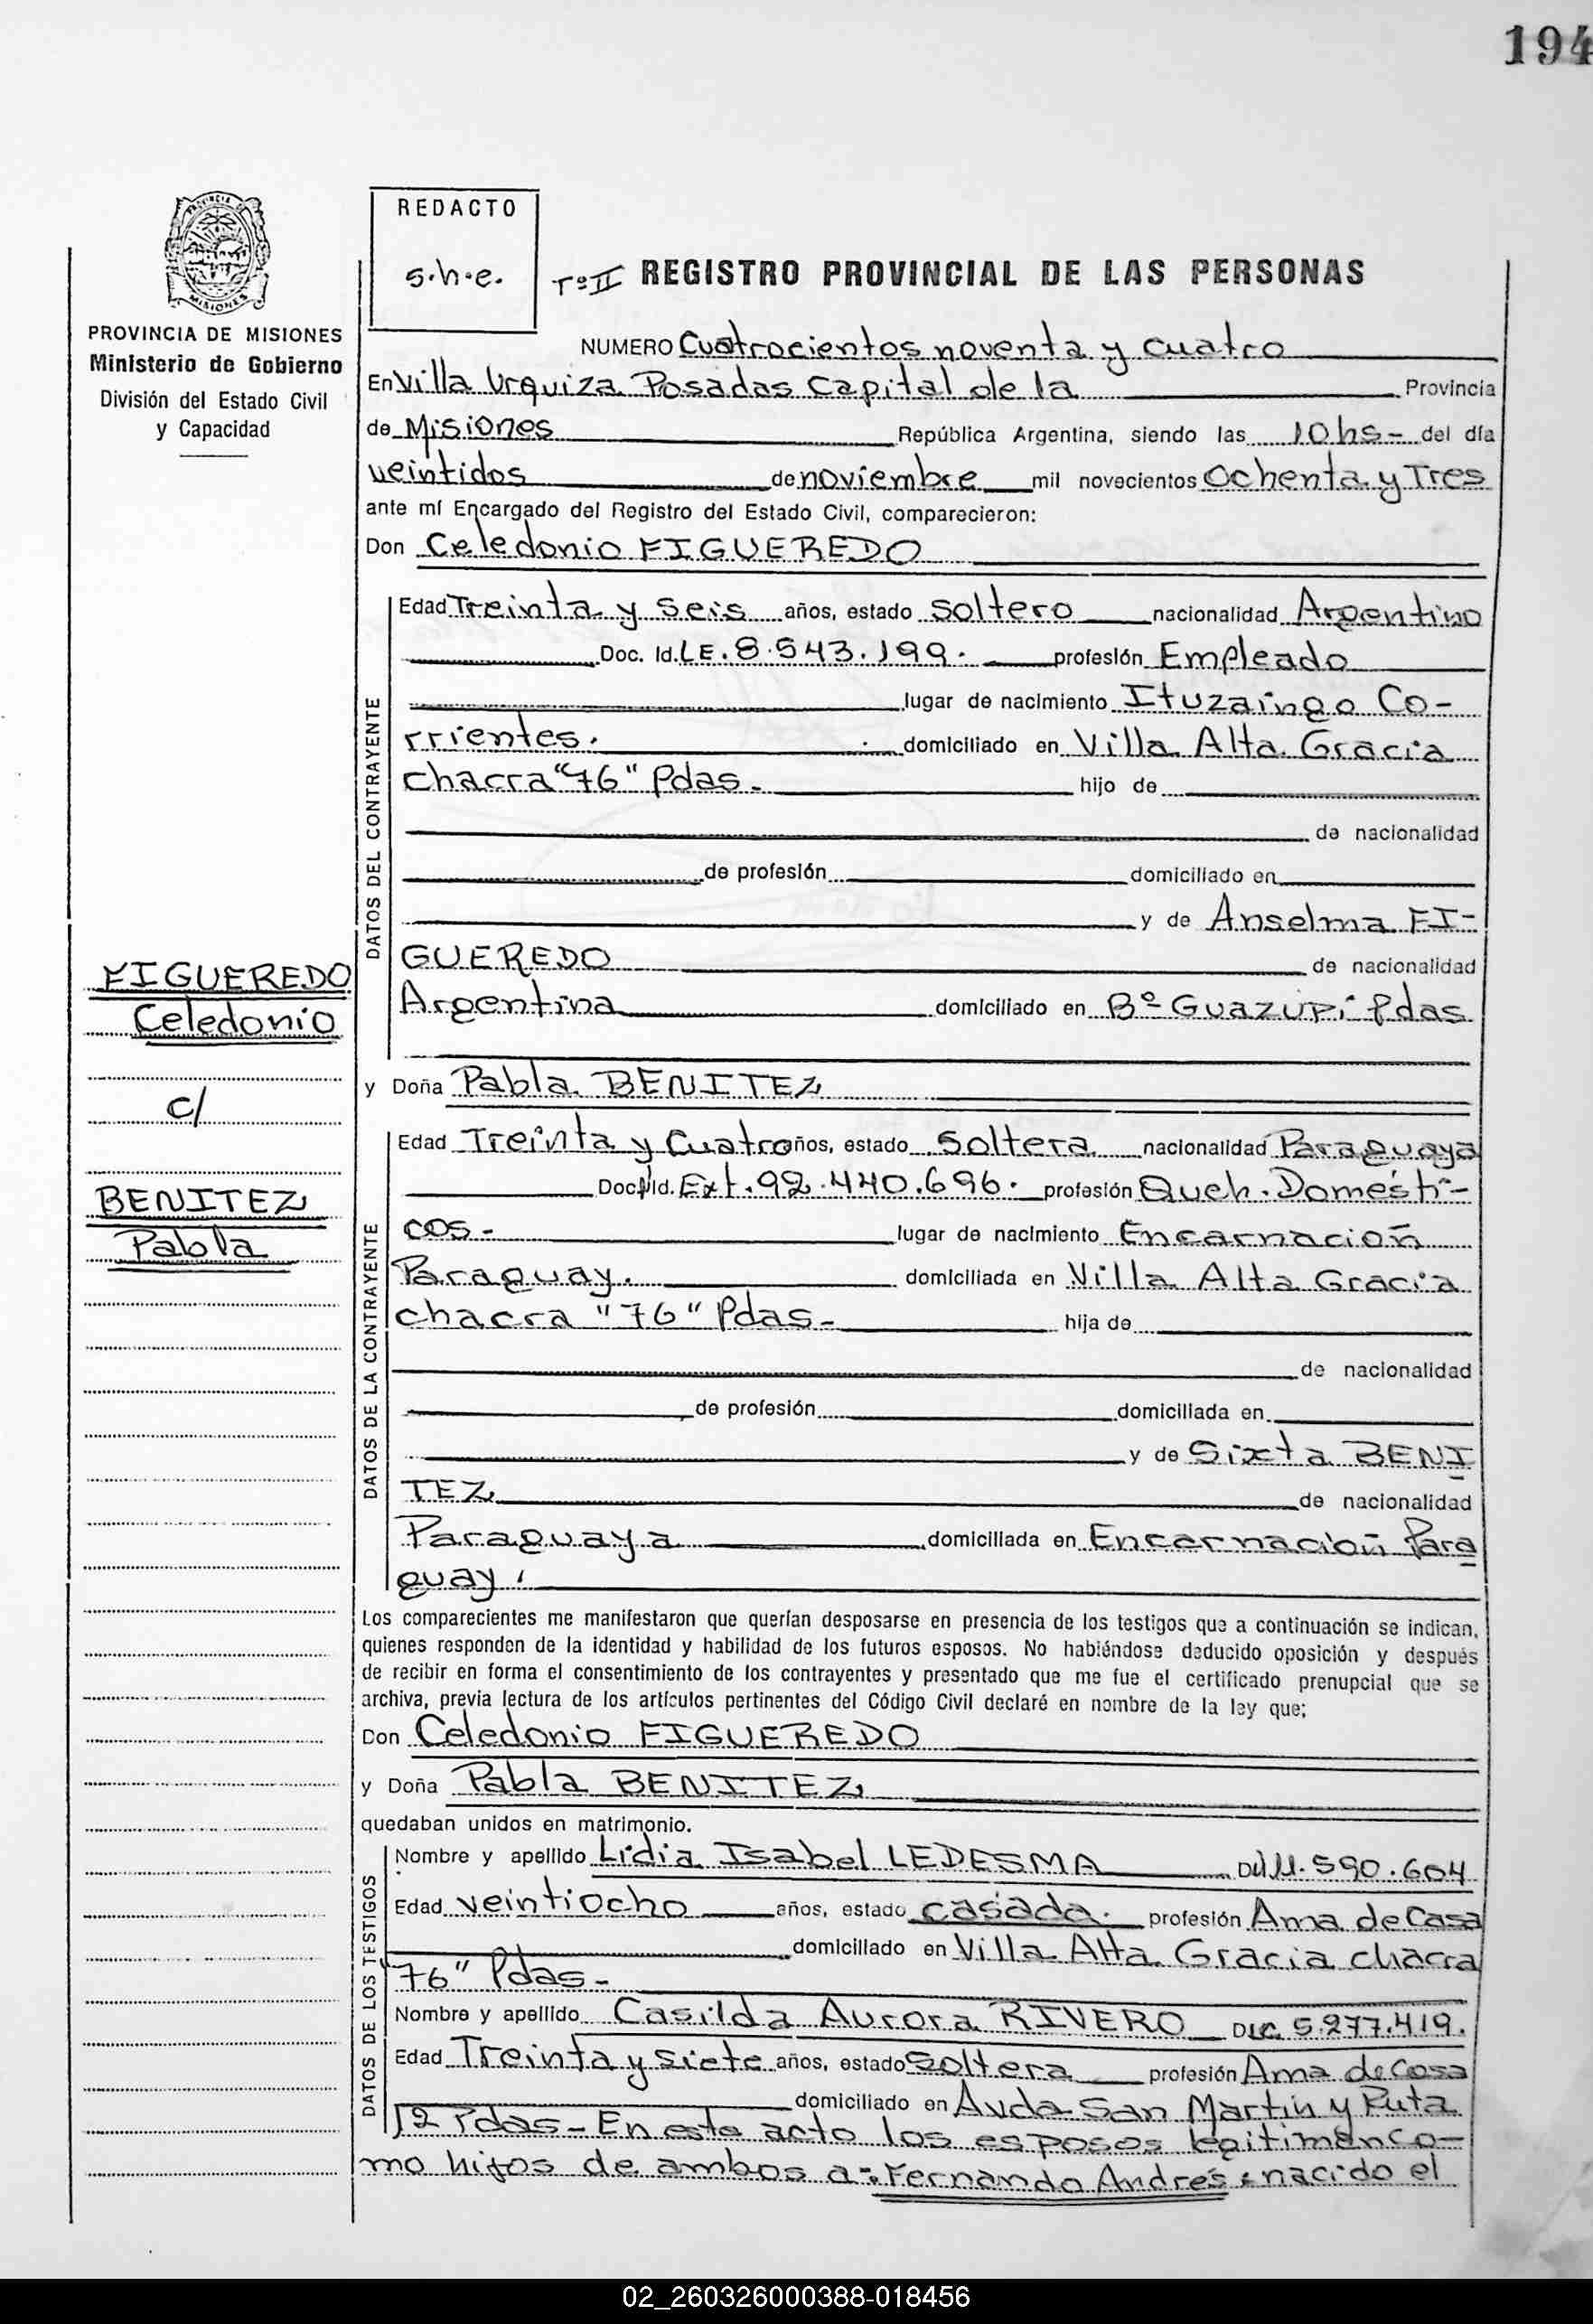 194
REDACTO
s.h.e.
Tº II REGISTRO PROVINCIAL DE LAS PERSONAS
PROVINCIA DE MISIONES
Ministerio de Gobierno
División del Estado Civil
y Capacidad
NUMERO Cuatrocientos noventa y cuatro
En Villa Urquiza Posadas Capital de la Provincia
de Misiones República Argentina, siendo las 10 hs- del día
veintidos de noviembre mil novecientos Ochenta y Tres
ante mí Encargado del Registro del Estado Civil, comparecieron:
Don Celedonio FIGUEREDO
DATOS DEL CONTRAYENTE
Edad Treinta y seis años, estado soltero nacionalidad Argentino
Doc. Id. LE. 8.543.199. profesión Empleado
lugar de nacimiento Ituzaingo Co-
rrientes. domiciliado en Villa Alta Gracia
chacra "76" Pdas- hijo de
de nacionalidad
de profesión domiciliado en
y de Anselma FI-
GUEREDO de nacionalidad
Argentina domiciliado en Bº Guazupí Pdas
FIGUEREDO
Celedonio
c/
BENITEZ
Pabla
y Doña Pabla BENITEZ
DATOS DE LA CONTRAYENTE
Edad Treinta y Cuatro años, estado soltera nacionalidad Paraguaya
Doc. Id. Ext. 92.440.696. profesión Queh. Domésti-
cos- lugar de nacimiento Encarnación
Paraguay. domiciliada en Villa Alta Gracia
chacra "76" Pdas- hija de
de nacionalidad
de profesión domiciliada en
y de Sixta BENI
TEZ de nacionalidad
Paraguaya domiciliada en Encarnación Para
guay.
Los comparecientes me manifestaron que querían desposarse en presencia de los testigos que a continuación se indican,
quienes responden de la identidad y habilidad de los futuros esposos. No habiéndose deducido oposición y después
de recibir en forma el consentimiento de los contrayentes y presentado que me fue el certificado prenupcial que se
archiva, previa lectura de los artículos pertinentes del Código Civil declaré en nombre de la ley que;
Don Celedonio FIGUEREDO
y Doña Pabla BENITEZ
quedaban unidos en matrimonio.
DATOS DE LOS TESTIGOS
Nombre y apellido Lidia Isabel LEDESMA DU 11.590.604
Edad veintiocho años, estado casada. profesión Ama de Casa
domiciliado en Villa Alta Gracia chacra
"76" Pdas-
Nombre y apellido Casilda Aurora RIVERO DLC. 5.277.419.
Edad Treinta y siete años, estado soltera profesión Ama de Casa
domiciliado en Avda San Martín y Ruta
12 Pdas- En este acto los esposos legitiman co-
mo hijos de ambos a:- Fernando Andrés: nacido el
02_260326000388-018456